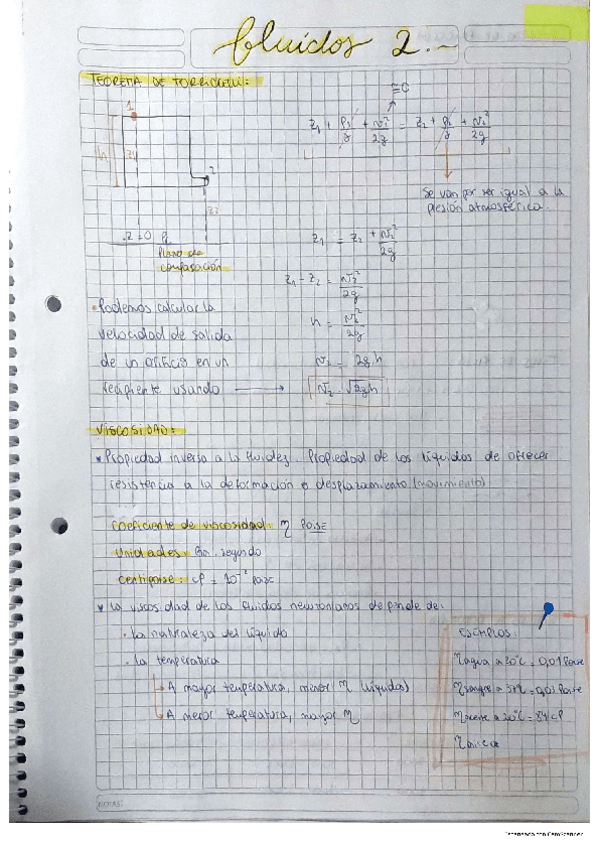 fluidos 2.-
TEOREMA DE TORRICELLI:
≡0
1
z₁ + P₁/γ + v₁²/2g = z₂ + P₂/γ + v₂²/2g
h
z₁
2
z₂
Se van por ser igual a la
presión atmosférica.
z=0
Plano de
comparación
z₁ = z₂ + v₂²/2g
z₁ - z₂ = v₂²/2g
• Podemos calcular la
velocidad de salida
de un orificio en un
recipiente usando →
h = v₂²/2g
v₂ = 2gh
v₂ = √2gh
VISCOSIDAD:
• Propiedad inversa a la fluidez. Propiedad de los líquidos de ofrecer
resistencia a la deformación o desplazamiento (movimiento)
Coeficiente de viscosidad: η Poise
Unidades: segundo
Centipoise: cP = 10⁻² Poise
• La viscosidad de los fluidos newtonianos depende de:
• La naturaleza del líquido
• La temperatura
A mayor temperatura, menor η (líquidos)
A menor temperatura, mayor η
EJEMPLOS:
η agua a 20°C = 0,01 Poise
η sangre a 37°C = 0,03 Poise
η aceite a 20°C = 84 cP
NOTAS: